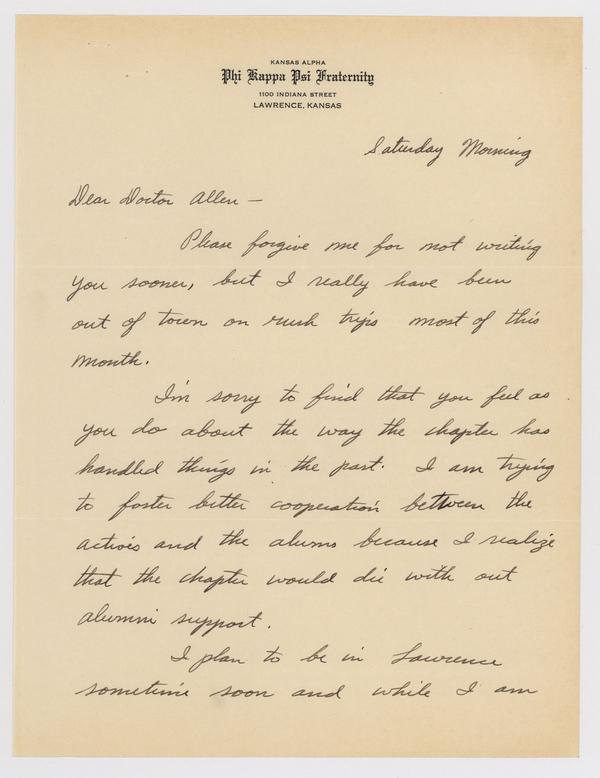 KANSAS ALPHA
Phi Kappa Psi Fraternity
1100 INDIANA STREET
LAWRENCE, KANSAS
Saturday Morning
Dear Doctor Allen —
Please forgive me for not writing
you sooner, but I really have been
out of town on rush trips most of this
month.
I'm sorry to find that you feel as
you do about the way the chapter has
handled things in the past. I am trying
to foster better cooperation between the
actives and the alums because I realize
that the chapter would die with out
alumni support.
I plan to be in Lawrence
sometime soon and while I am